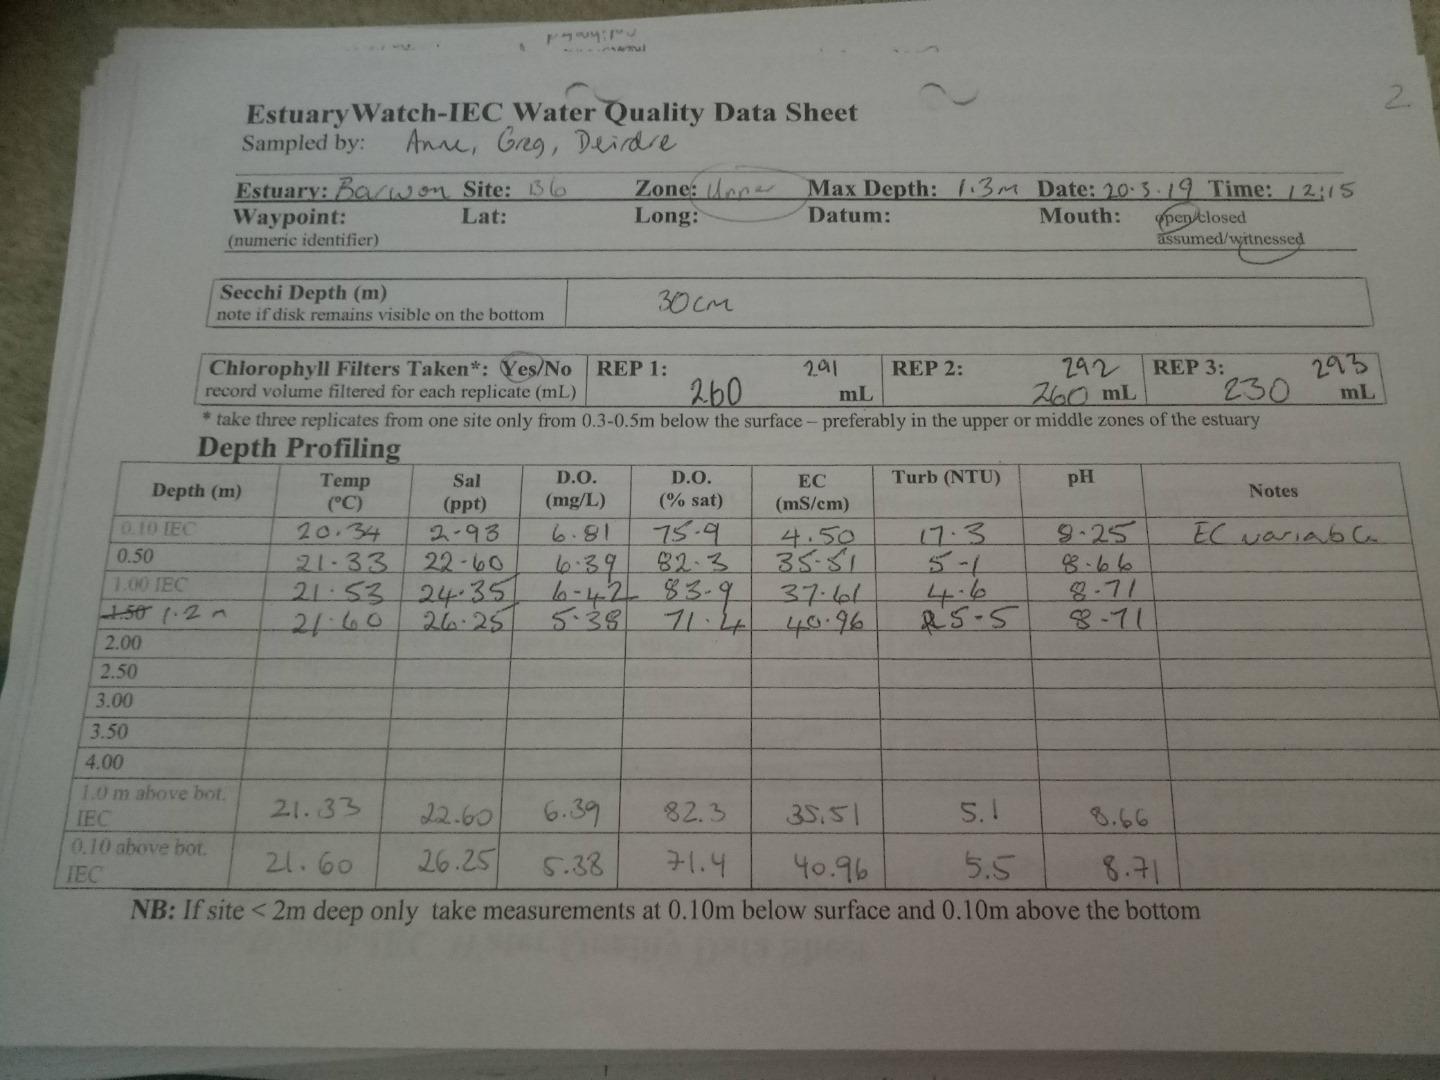 2
EstuaryWatch-IEC Water Quality Data Sheet
Sampled by: Anne, Greg, Deirdre
Estuary: Barwon Site: B6 Zone: Upper Max Depth: 1.3m Date: 20.3.19 Time: 12:15
Waypoint: Lat: Long: Datum: Mouth: open/closed
(numeric identifier) assumed/witnessed
Secchi Depth (m) 30cm
note if disk remains visible on the bottom
Chlorophyll Filters Taken*: Yes/No REP 1: 291 REP 2: 292 REP 3: 293
record volume filtered for each replicate (mL) 260 mL 260 mL 230 mL
* take three replicates from one site only from 0.3-0.5m below the surface – preferably in the upper or middle zones of the estuary
Depth Profiling
Depth (m) Temp (°C) Sal (ppt) D.O. (mg/L) D.O. (% sat) EC (mS/cm) Turb (NTU) pH Notes
0.10 IEC 20.34 2.93 6.81 75.9 4.50 17.3 8.25 EC variable
0.50 21.33 22.60 6.39 82.3 35.51 5.1 8.66
1.00 IEC 21.53 24.35 6.42 83.9 37.61 4.6 8.71
1.50 1.2m 21.60 26.25 5.38 71.4 40.96 5.5 8.71
2.00
2.50
3.00
3.50
4.00
1.0 m above bot. IEC 21.33 22.60 6.39 82.3 35.51 5.1 8.66
0.10 above bot. IEC 21.60 26.25 5.38 71.4 40.96 5.5 8.71
NB: If site < 2m deep only take measurements at 0.10m below surface and 0.10m above the bottom